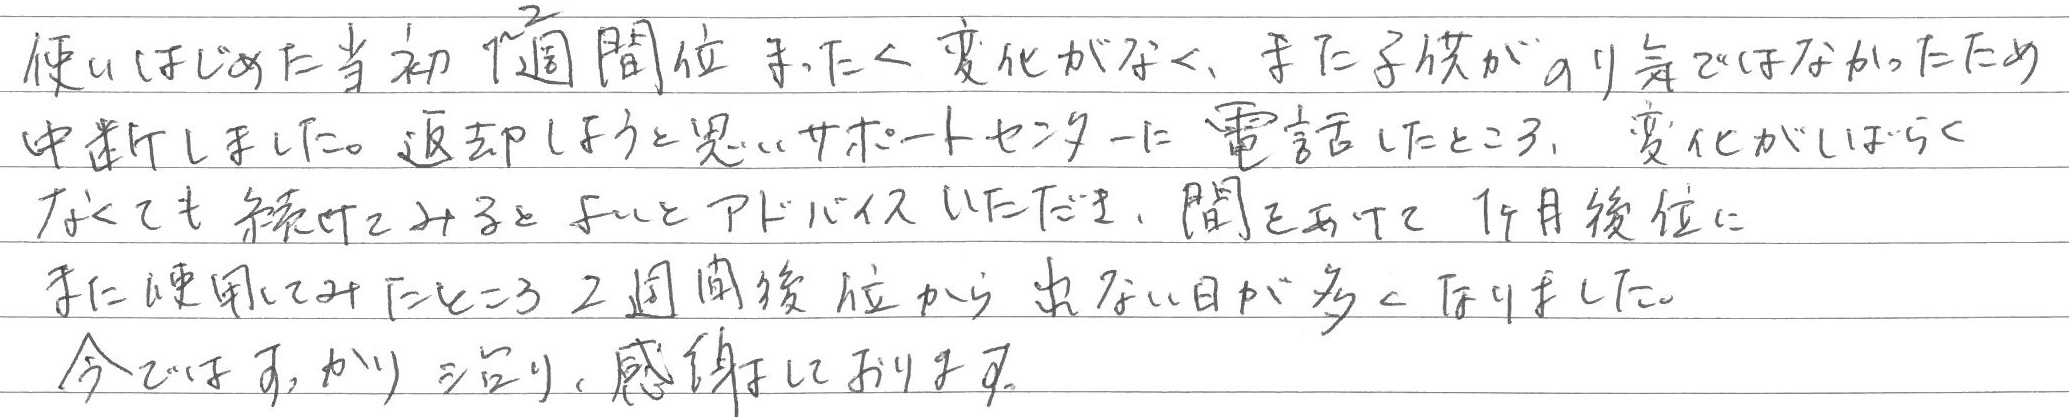 使いはじめた当初1~2週間位まったく変化がなく、また子供がのり気ではなかったため
中断しました。返却しようと思いサポートセンターに電話したところ、変化がしばらく
なくても続けてみるとよいとアドバイスいただき、間をあけて1ヶ月後位に
また使用してみたところ2週間後位から出ない日が多くなりました。
今ではすっかり治り、感謝しております。